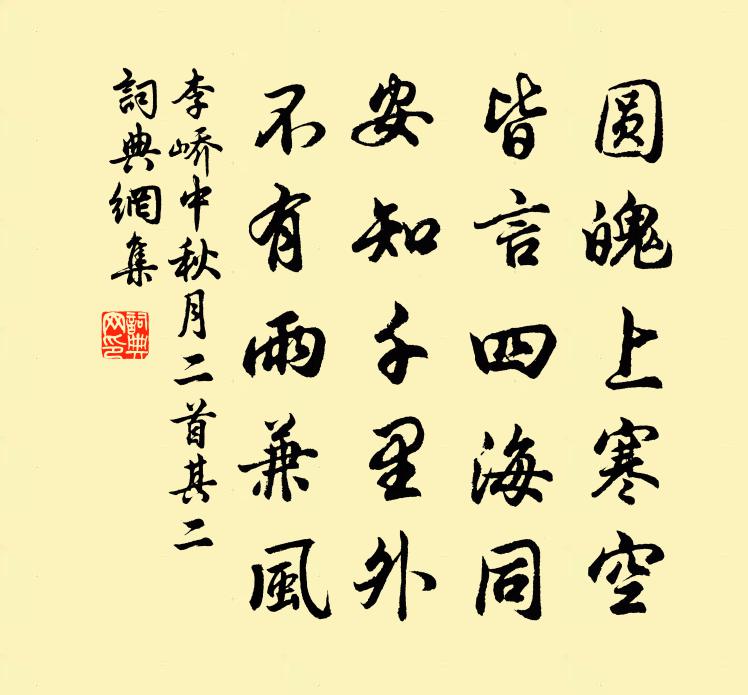 圆魄上寒空
皆言四海同
安知千里外
不有雨兼風
李嶠中秋月二首其二
詞典網集
詞典
网印